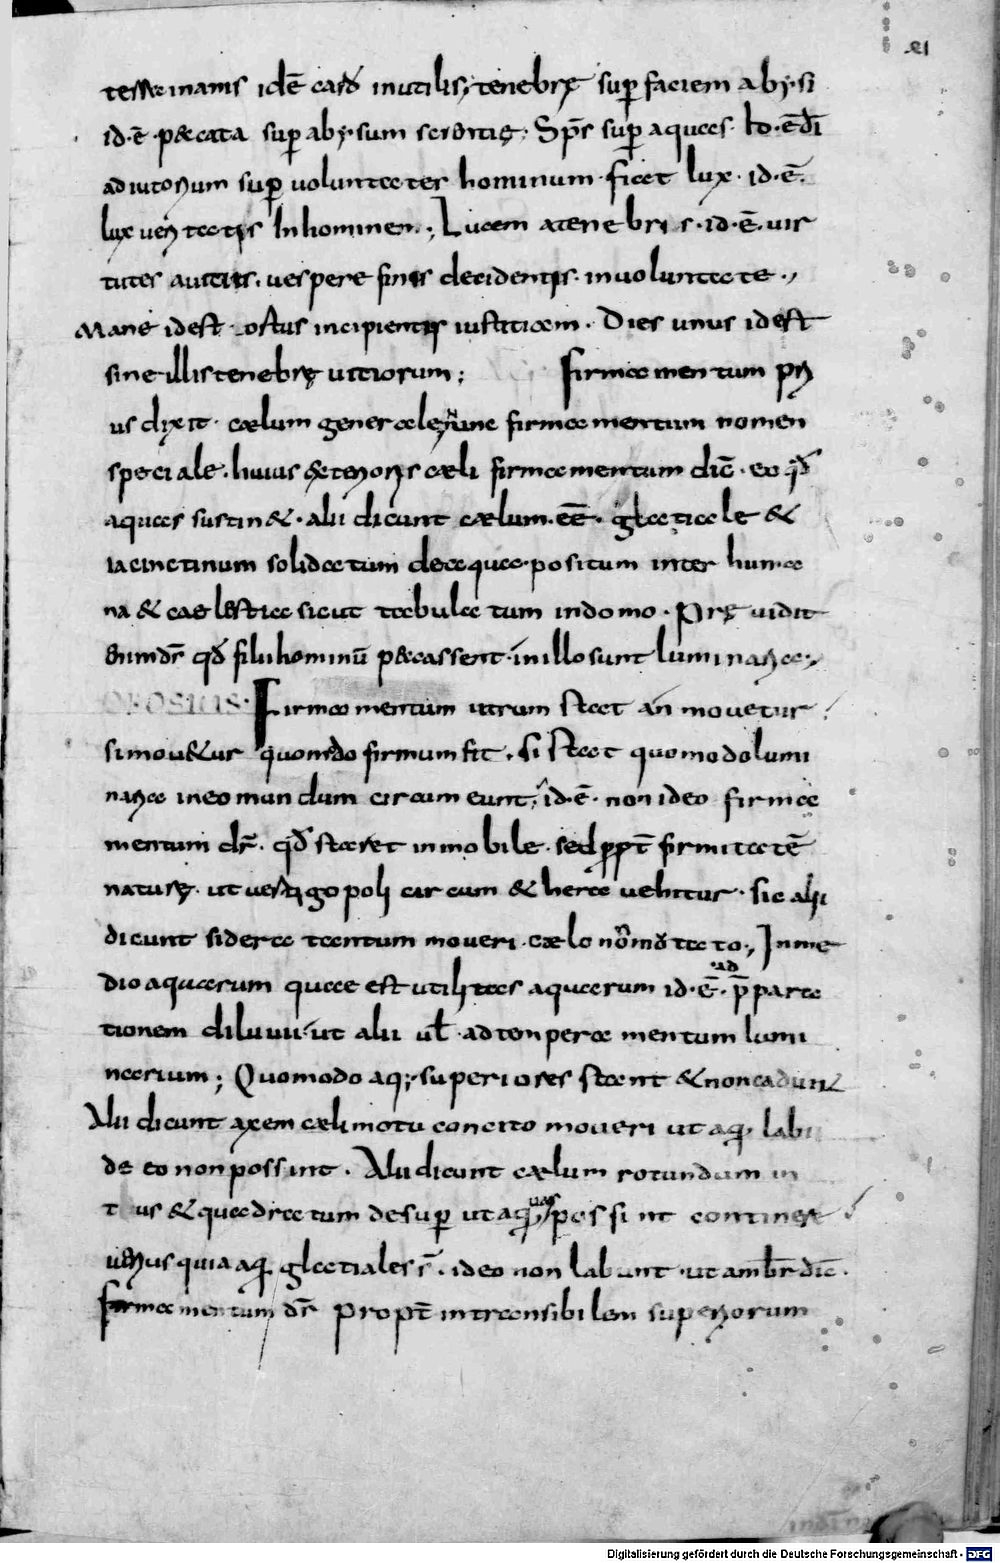 terra inanis idē caro inutilis; tenebrę sup faciem abysi
id·ē· peccata sup abyssum scientię; Sps sup aquas· id·ē dī
adiutorium sup uoluntates hominum· fiat lux· id·ē·
lux ueritatis In homines·; Lucem a tenebris· id·ē· uir
tutes a uitiis· uespere finis decidentis· in uoluntate·,
Mane id est ostus incipientis iustitiam· Dies unus id est
sine illis tenebrę uitiorum; firmamentum pri
us dixit· caelum generale nunc firmamentum nomen
speciale· huius exterioris caeli firmamentum dic̄· eo qđ
aquas sustin&· alii dicunt caelum· eē· glatiale &
iacinctinum solidatum de aqua· positum inter huma
na & caelestia sicut tabulatum in domo· Pręuidit
enim ds qđ filii hominū peccassent· in illo sunt luminaria·,
OROSIUS· Firmamentum utrum stat an mouetur
si mou&ur quomodo firmum sit· si stat quomodo lumi
naria in eo mundum circumeunt; id·ē· non ideo firma
mentum dr̄· qđ staret inmobile· sed propt̄ firmitatē
naturę· ut uertigo poli circum & hera uehitur· sic alii
dicunt sidera tantum moueri· caelo nō mutato·, In me
dio aquarum quae est utilitas aquarum id·ē· ad p̄para
tionem diluuii· ut alii ut ł· ad temperamentum lumi
narium; Quomodo aq; superiores stant & non cadun&
Alii dicunt axem caeli motu concito moueri ut aq· labi
de eo non possint· Alii dicunt caelum rotundum in
t us & quadratum desup ut aq; uas possint continere
uerius quia aq glatiales s̄· ideo non labunt· ut ambr dic̄·
firmamentum dr̄ propt̄ intransibilem superiorum